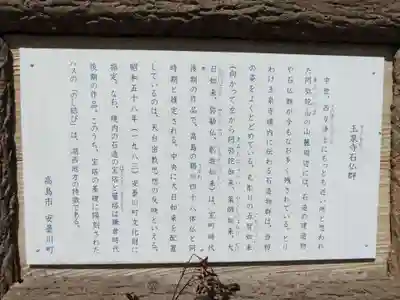 玉泉寺石仏群
中世、西方浄土にもっとも近い所と思われ
た阿弥陀山の山麓周辺には、石造の建造物
や石仏群が今もなお多く残されている。とり
わけ玉泉寺境内に伝わる石造物群は、当初
の姿をよくとどめている。丸彫りの五智如来
(向かって左から阿弥陀如来、薬師如来、大
日如来、弥勒仏、釈迦如来)は、室町時代
後期の作品で、高島の鵜川四十八体仏と同
時期と推定される。中央に大日如来を配置
しているのは、天台密教思想の反映といえる。
昭和五十八年(一九八三)安曇川町文化財に
指定。なお、境内の石造の宝塔と層塔は鎌倉時代
後期の作品。このうち、宝塔の基礎に陽刻された
ハスの「のし結び」は、湖西地方の特徴である。
高島市 安曇川町